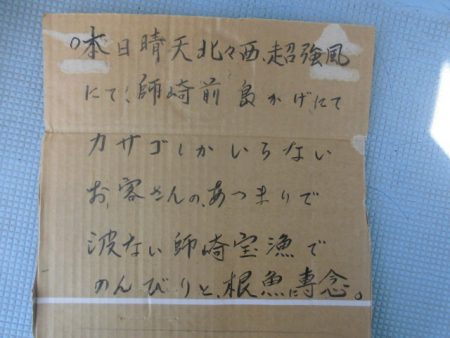 ○本日晴天北々西、超強風
にて、師崎前島かげにて
カサゴしかいらない
お客さんの、あつまりで
波ない師崎宝漁で
のんびりと、根魚に専念。